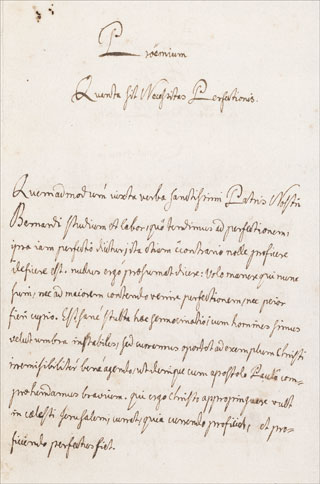 Proëmium
Quanta sit Necessitas Perfectionis.
Quemadmodum iuxta verba Sanctissimi Patris Nostri
Bernardi studium et labor, quo tendimus ad perfectionem,
ipsa iam perfectio dicitur, ita etiam è contrario nolle proficere
deficere est. nullus ergo præsumat dicere: Volo manere qui nunc
sum, nec ad maiorem contendo venire perfectionem, nec peior
fieri cupio. Est sane stulta hæc sermocinatio; cum homines simus
velut umbra instabiles, sed curremus oportet ad exemplum Christi
bene agendo, ut denique cum apostolo Paulo com-
prehendamus bravium. qui ergo Christo appropinquare vult
in cælesti Jerusalem, currat, quia currendo proficiet, et pro-
ficiendo perfectus fiet.